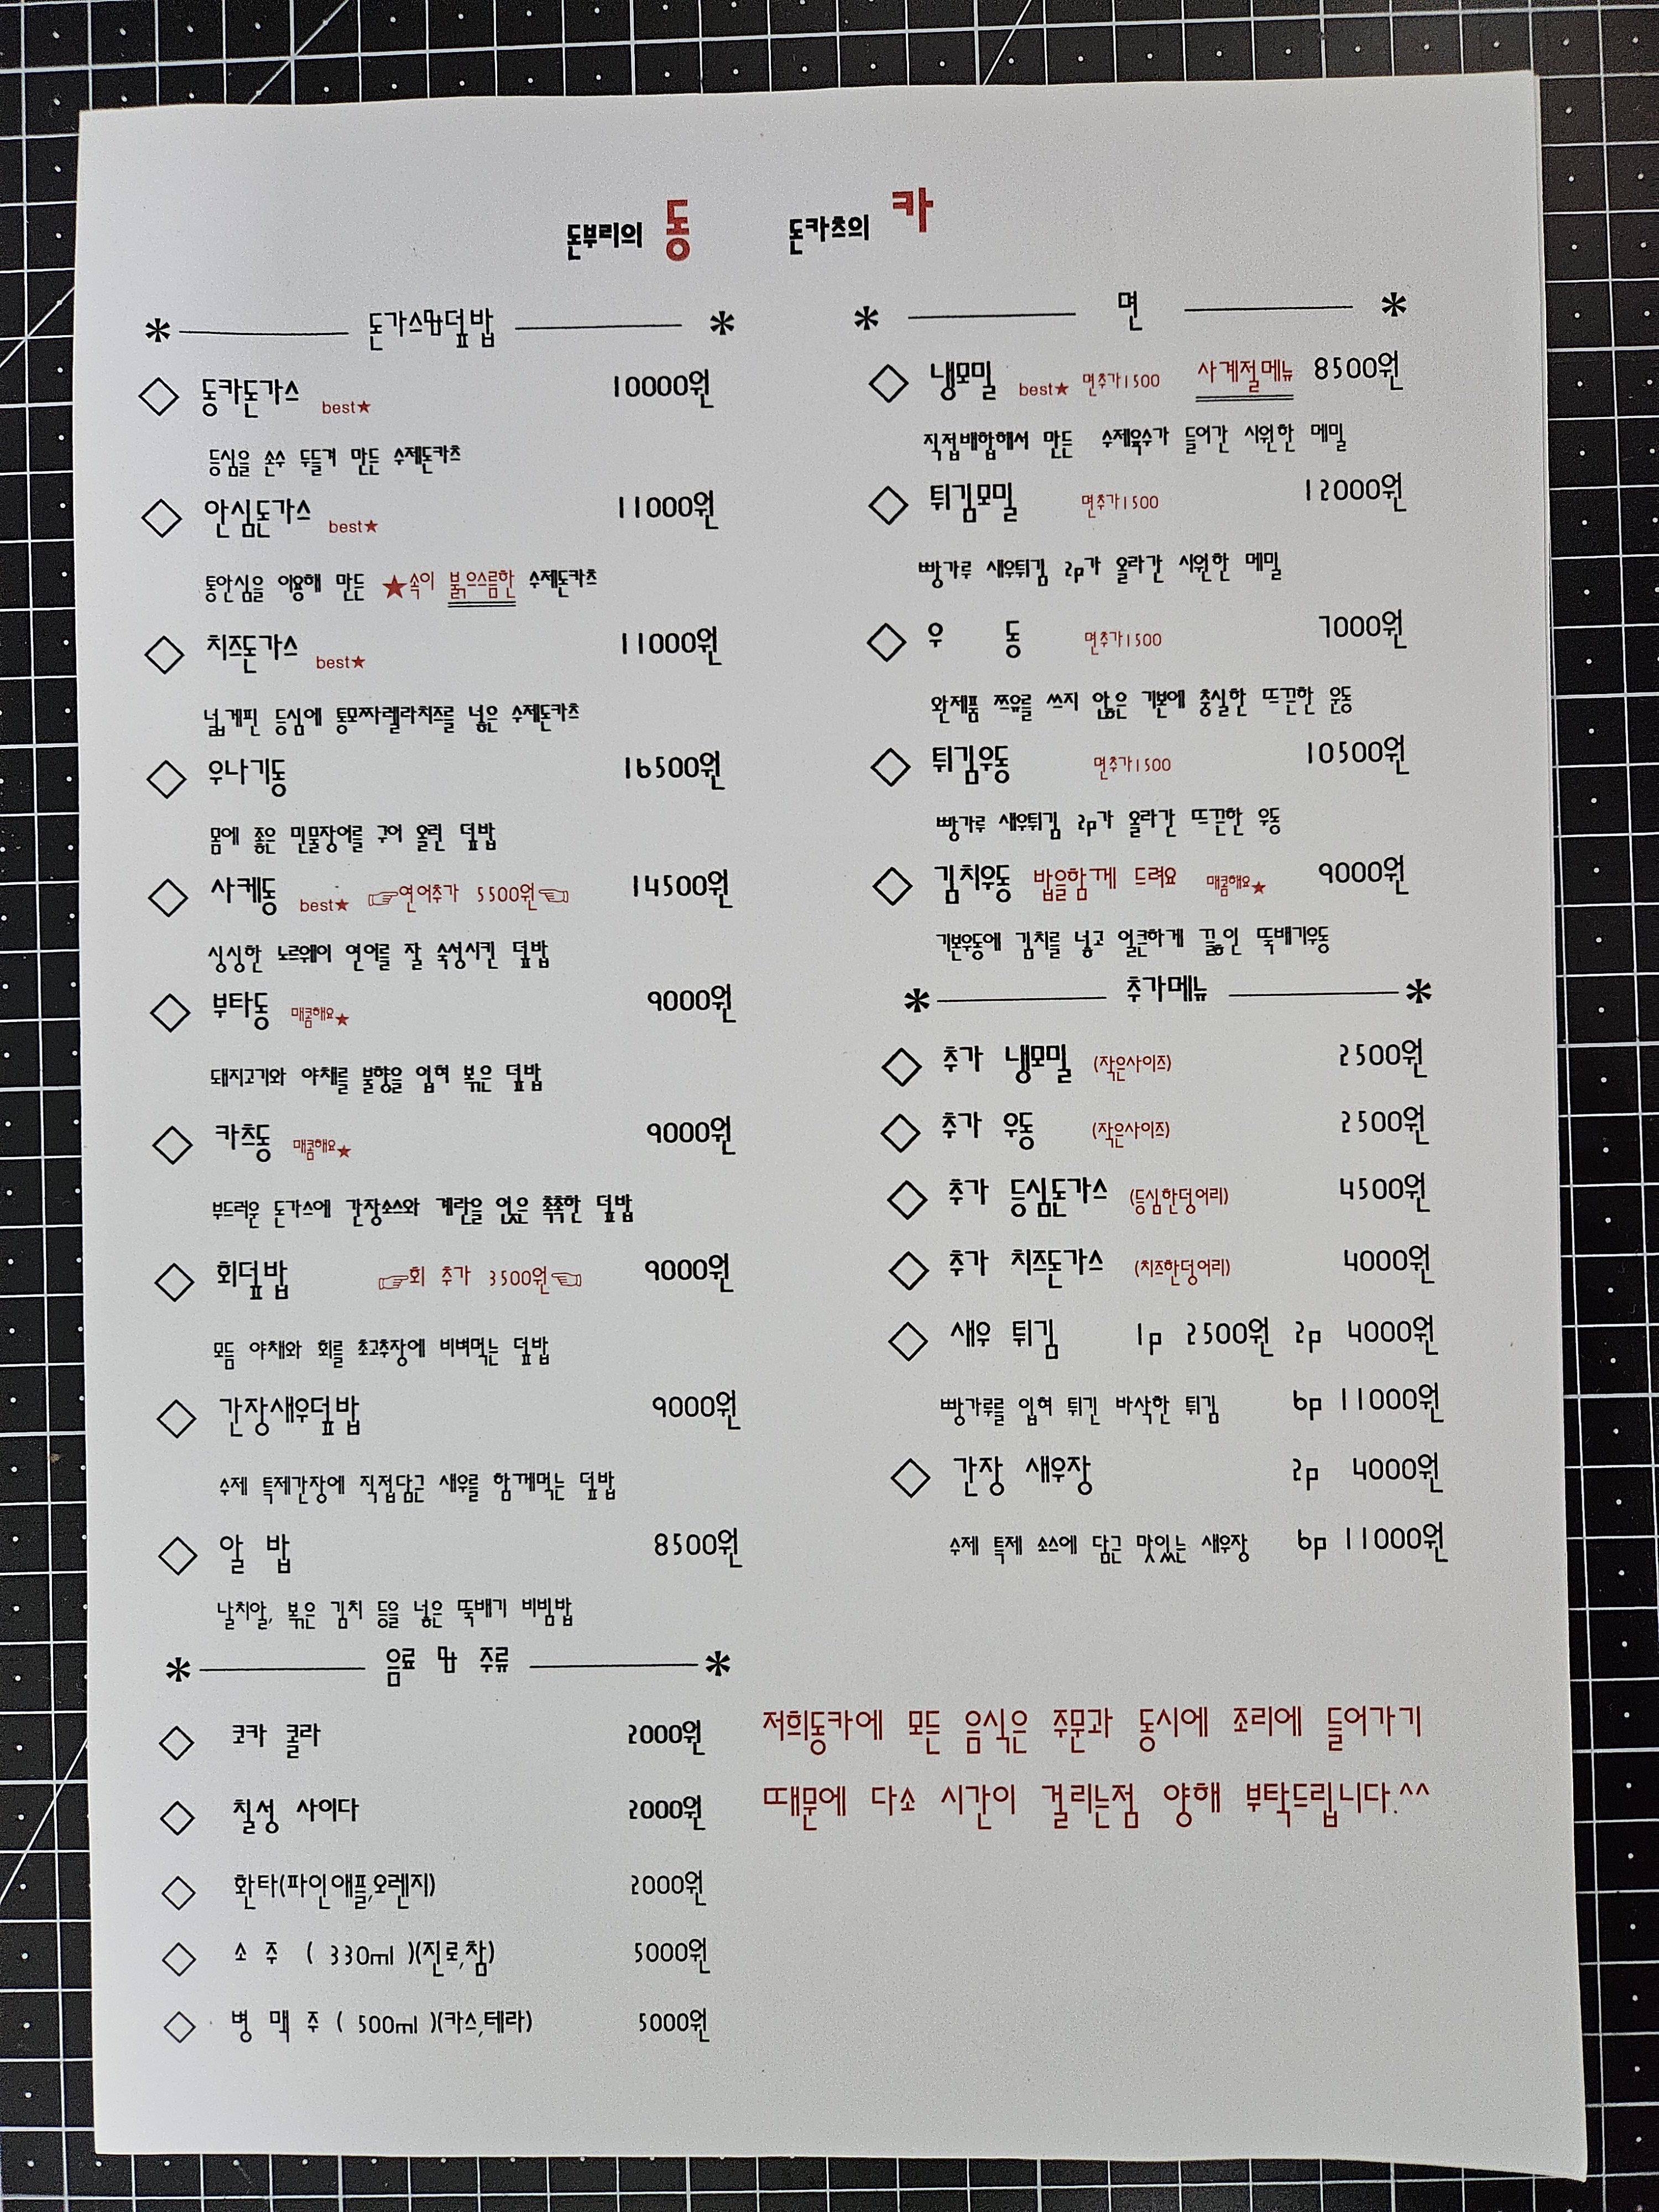 돈부리의 동 돈카츠의 카
* 돈가스및덮밥 *
◇ 동카돈가스 best★ 10000원
등심을 손수 두들겨 만든 수제돈카츠
◇ 안심돈가스 best★ 11000원
통안심을 이용해 만든 ★속이 붉으스름한 수제돈카츠
◇ 치즈돈가스 best★ 11000원
넓게핀 등심에 통모짜렐라치즈를 넣은 수제돈카츠
◇ 우나기동 16500원
몸에 좋은 민물장어를 구어 올린 덮밥
◇ 사케동 best★ ☞연어추가 5500원☜ 14500원
싱싱한 노르웨이 연어를 잘 숙성시킨 덮밥
◇ 부타동 매콤해요★ 9000원
돼지고기와 야채를 불향을 입혀 볶은 덮밥
◇ 카츠동 매콤해요★ 9000원
부드러운 돈가스에 간장소스와 계란을 얹은 촉촉한 덮밥
◇ 회덮밥 ☞회 추가 3500원☜ 9000원
모듬 야채와 회를 초고추장에 비벼먹는 덮밥
◇ 간장새우덮밥 9000원
수제 특제간장에 직접담근 새우를 함께먹는 덮밥
◇ 알 밥 8500원
날치알, 볶은 김치 등을 넣은 뚝배기 비빔밥
* 음료 및 주류 *
◇ 코카 콜라 2000원
◇ 칠성 사이다 2000원
◇ 환타(파인애플,오렌지) 2000원
◇ 소 주 ( 330ml )(진로,참) 5000원
◇ 병 맥 주 ( 500ml )(카스,테라) 5000원
* 면 *
◇ 냉모밀 best★ 면추가1500 사계절메뉴 8500원
직접배합해서 만든 수제육수가 들어간 시원한 메밀
◇ 튀김모밀 면추가1500 12000원
빵가루 새우튀김 2p가 올라간 시원한 메밀
◇ 우 동 면추가1500 7000원
완제품 쯔유를 쓰지 않은 기본에 충실한 뜨끈한 우동
◇ 튀김우동 면추가1500 10500원
빵가루 새우튀김 2p가 올라간 뜨끈한 우동
◇ 김치우동 밥을함께 드려요 매콤해요★ 9000원
기본우동에 김치를 넣고 얼큰하게 끓인 뚝배기우동
* 추가메뉴 *
◇ 추가 냉모밀 (작은사이즈) 2500원
◇ 추가 우동 (작은사이즈) 2500원
◇ 추가 등심돈가스 (등심한덩어리) 4500원
◇ 추가 치즈돈가스 (치즈한덩어리) 4000원
◇ 새우 튀김 1p 2500원 2p 4000원
빵가루를 입혀 튀긴 바삭한 튀김 6p 11000원
◇ 간장 새우장 2p 4000원
수제 특제 소스에 담근 맛있는 새우장 6p 11000원
저희동카에 모든 음식은 주문과 동시에 조리에 들어가기
때문에 다소 시간이 걸리는점 양해 부탁드립니다.^^